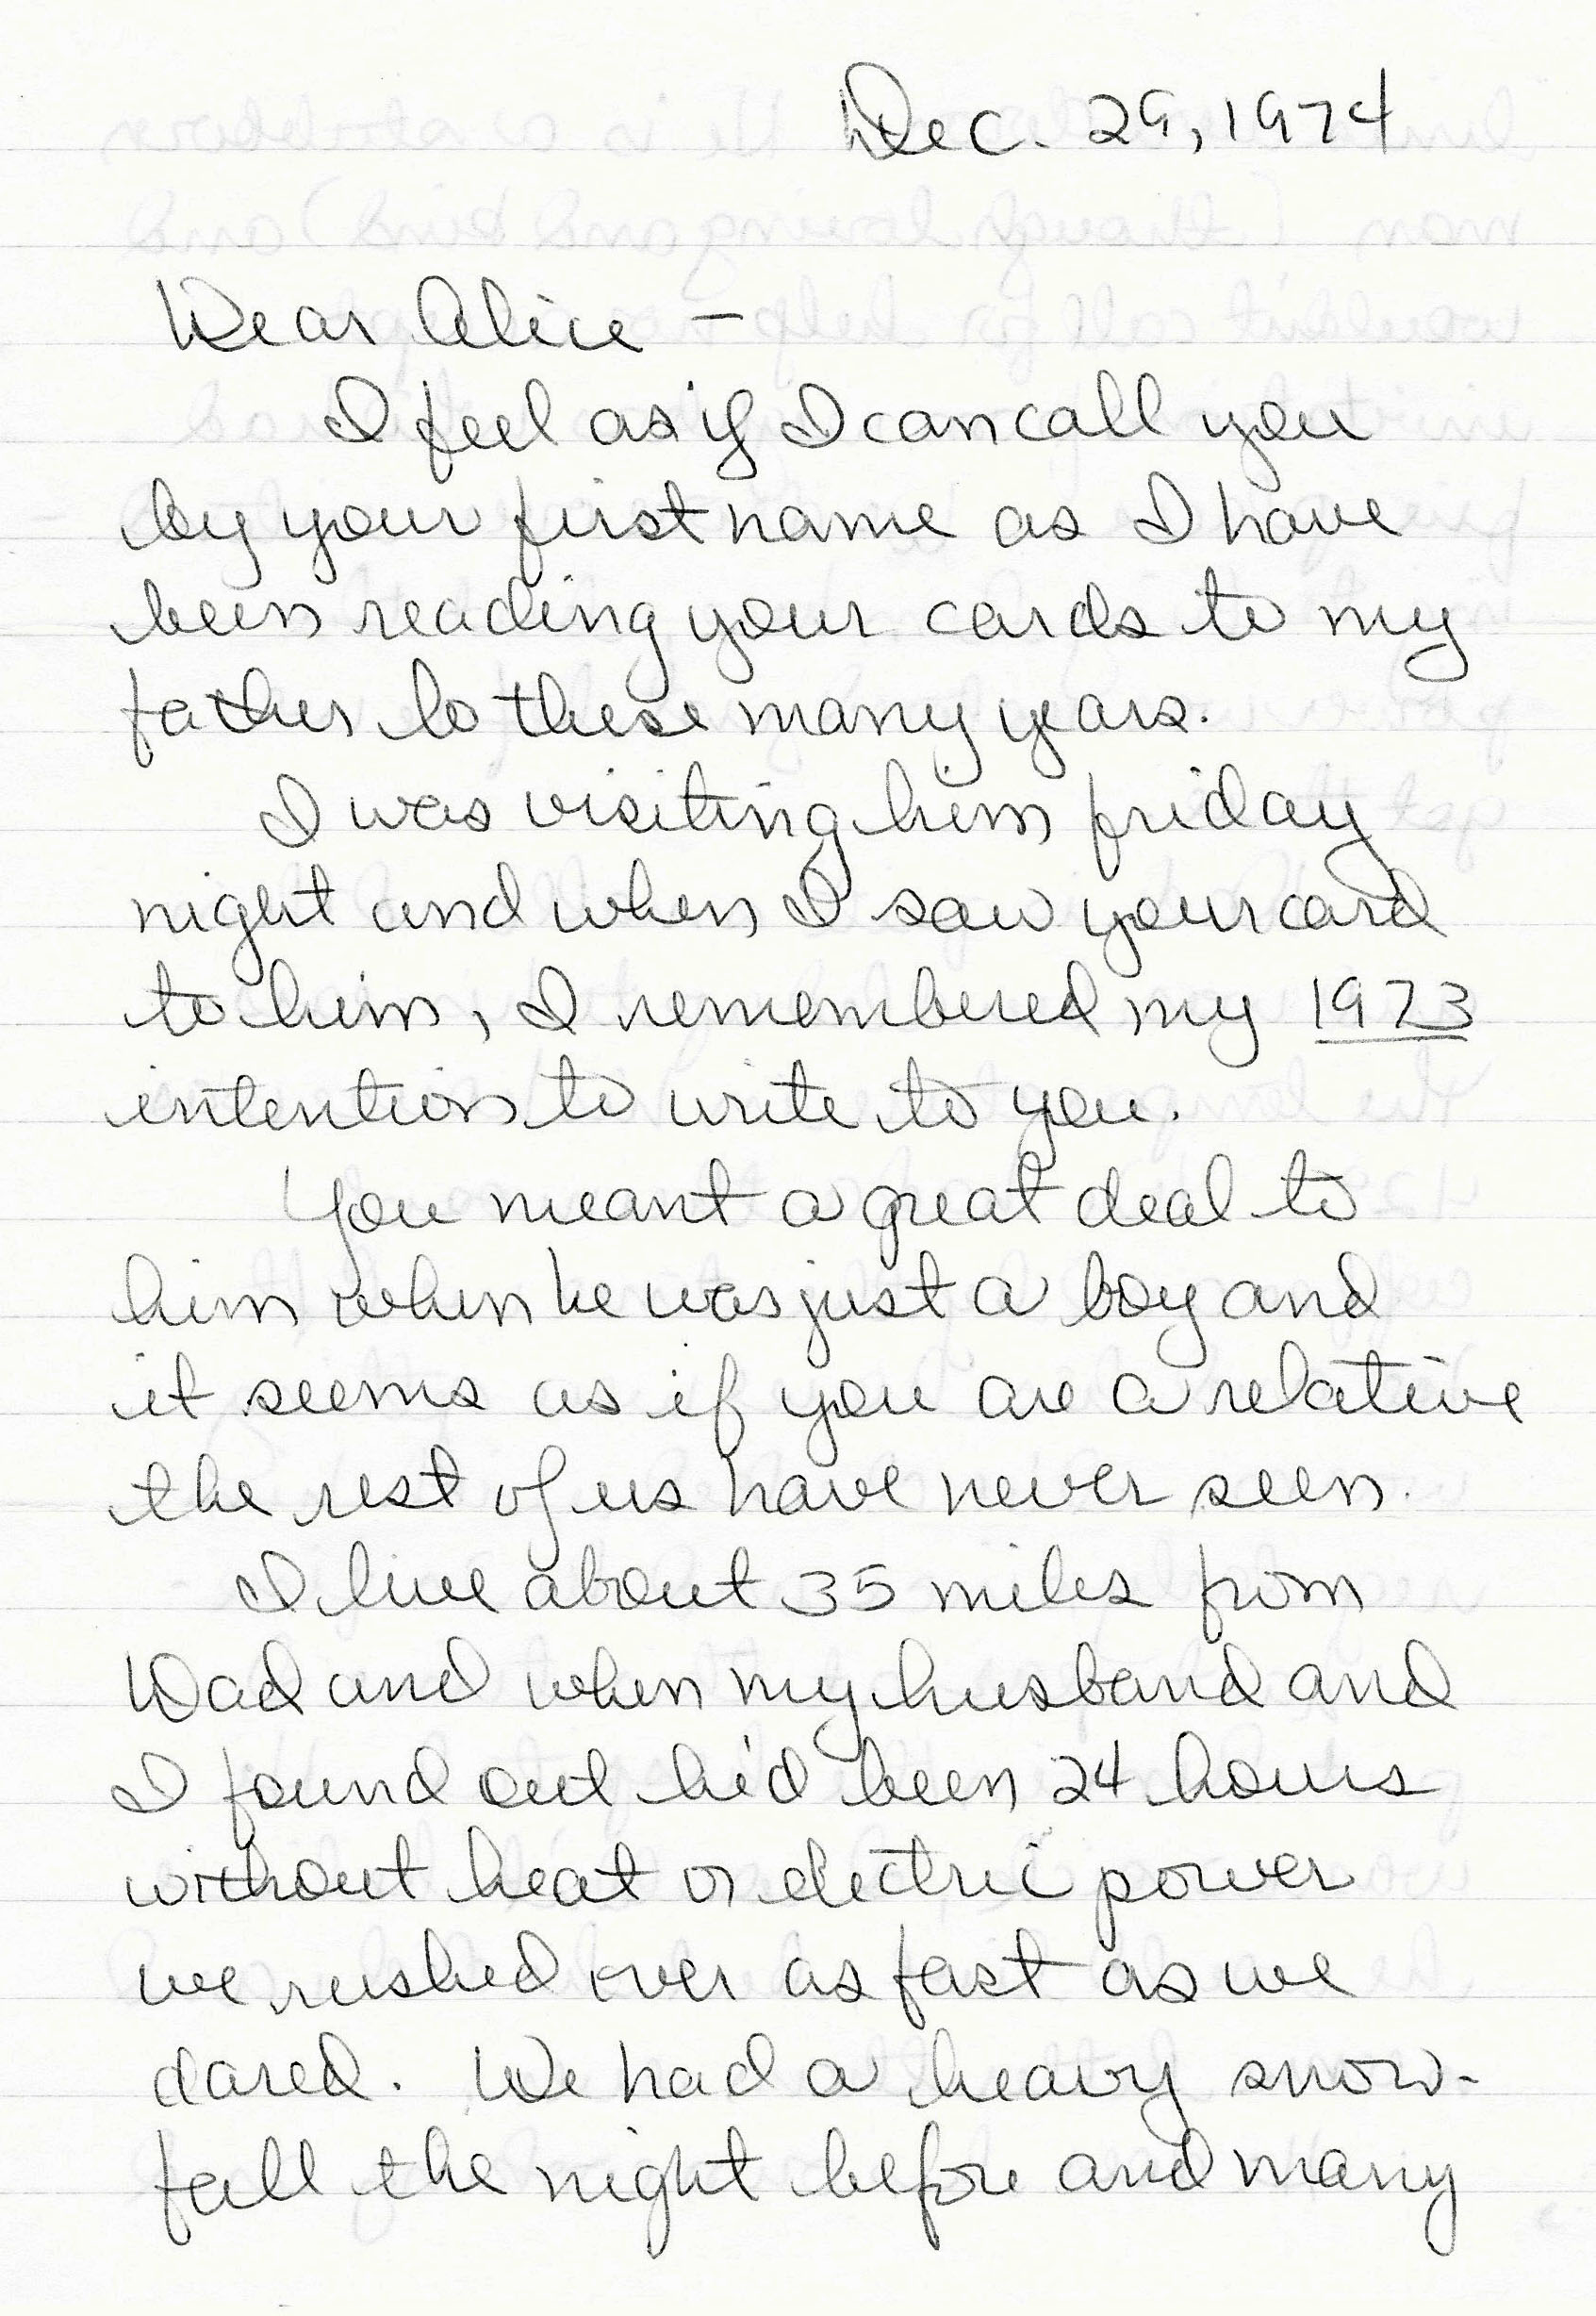 Dec. 29, 1974
Dear Alice —
I feel as if I can call you
by your first name as I have
been reading your cards to my
father lo these many years.
I was visiting him friday
night and when I saw your card
to him, I remembered my 1973
intention to write to you.
You meant a great deal to
him when he was just a boy and
it seems as if you are a relative
the rest of us have never seen.
I live about 35 miles from
Dad and when my husband and
I found out he'd been 24 hours
without heat or electric power
we rushed over as fast as we
dared. We had a heavy snow-
fall the night before and many